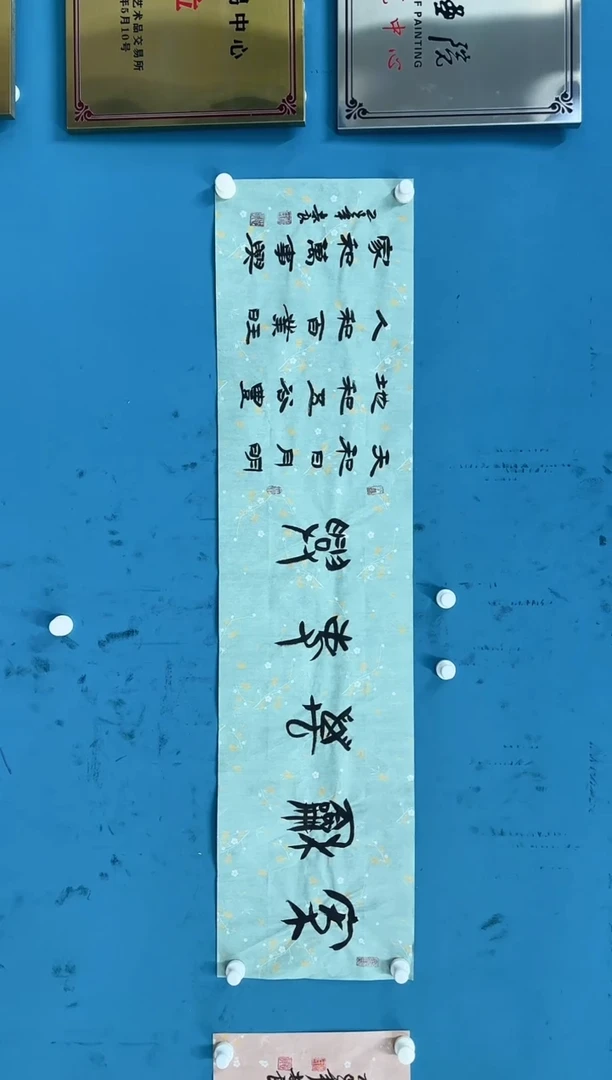 家龢萬事興
天和日月明
地和五谷豐
人和百業旺
家和萬事興
中心
艺术品交易所
年5月10号
院
F PAINTING
中心